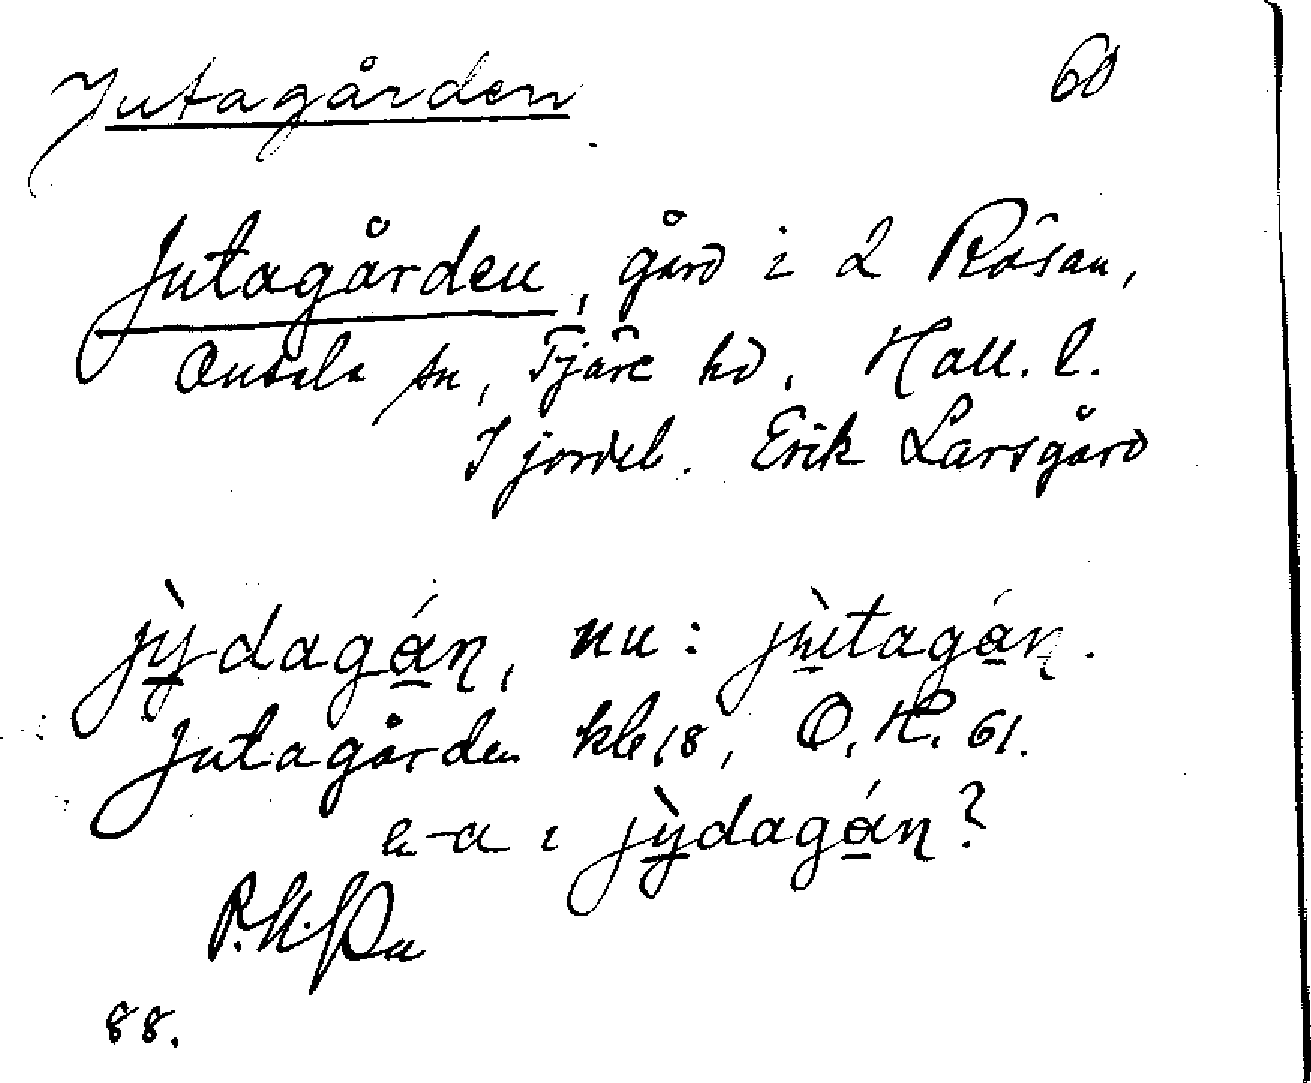 Jutagården 60
Jutagården, gård i 2 Rösan,
Onsala sn, Fjäre hd, Hall. l.
I jordeb. Erik Larsgård
jỳdagán, nu: jùtagán.
Jutagården kbl 18, O.H. 61.
a i jỳdagán?
88.